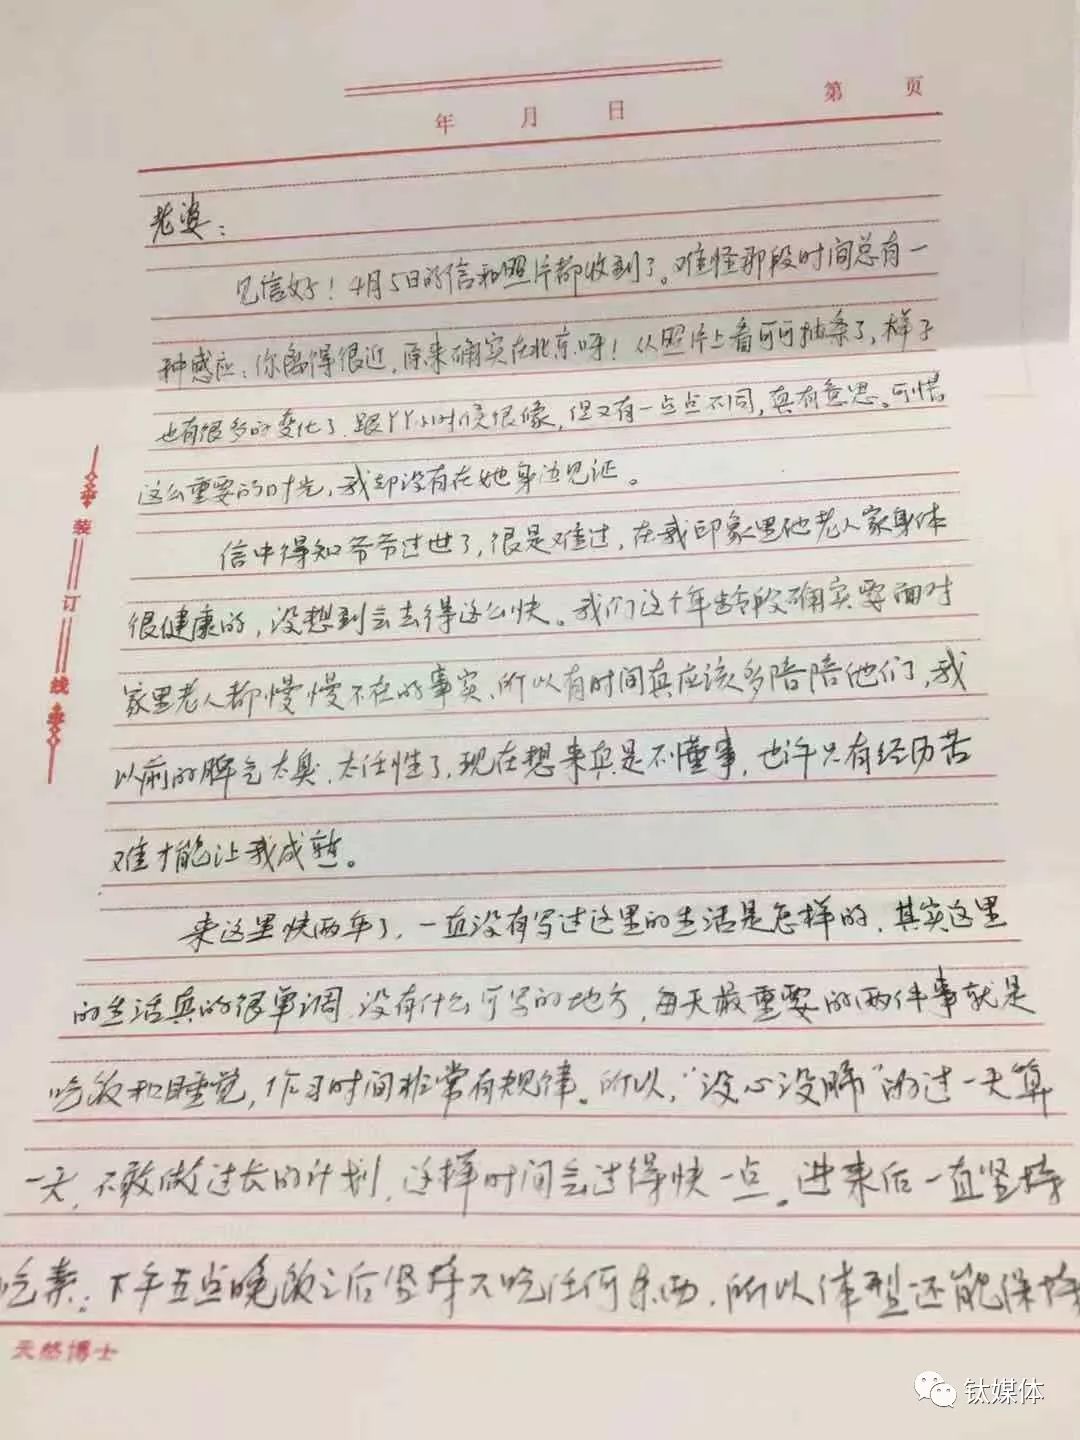 年 月 日 第 页
老婆：
见信好！4月5日的信和照片都收到了。难怪那段时间总有一
种感应：你离得很近，原来确实在北京呀！从照片上看可可抽条了，样子
也有很多的变化了，跟丫丫小时候很像，但又有一点点不同，真有意思。可惜
这么重要的时光，我却没有在她身边见证。
信中得知爷爷过世了，很是难过，在我印象里他老人家身体
很健康的，没想到会去得这么快。我们这个年龄段确实要面对
家里老人都慢慢不在的事实，所以有时间真应该多陪陪他们，我
以前的脾气太臭，太任性了，现在想来真是不懂事，也许只有经历苦
难才能让我成熟。
来这里快两年了，一直没有写过这里的生活是怎样的，其实这里
的生活真的很单调，没有什么可写的地方，每天最重要的两件事就是
吃饭和睡觉，作习时间非常有规律。所以，“没心没肺”的过一天算
一天，不敢做过长的计划，这样时间会过得快一点。进来后一直坚持
吃素；下午五点晚饭之后坚持不吃任何东西，所以体型还能保持
装订线
天然博士
钛媒体